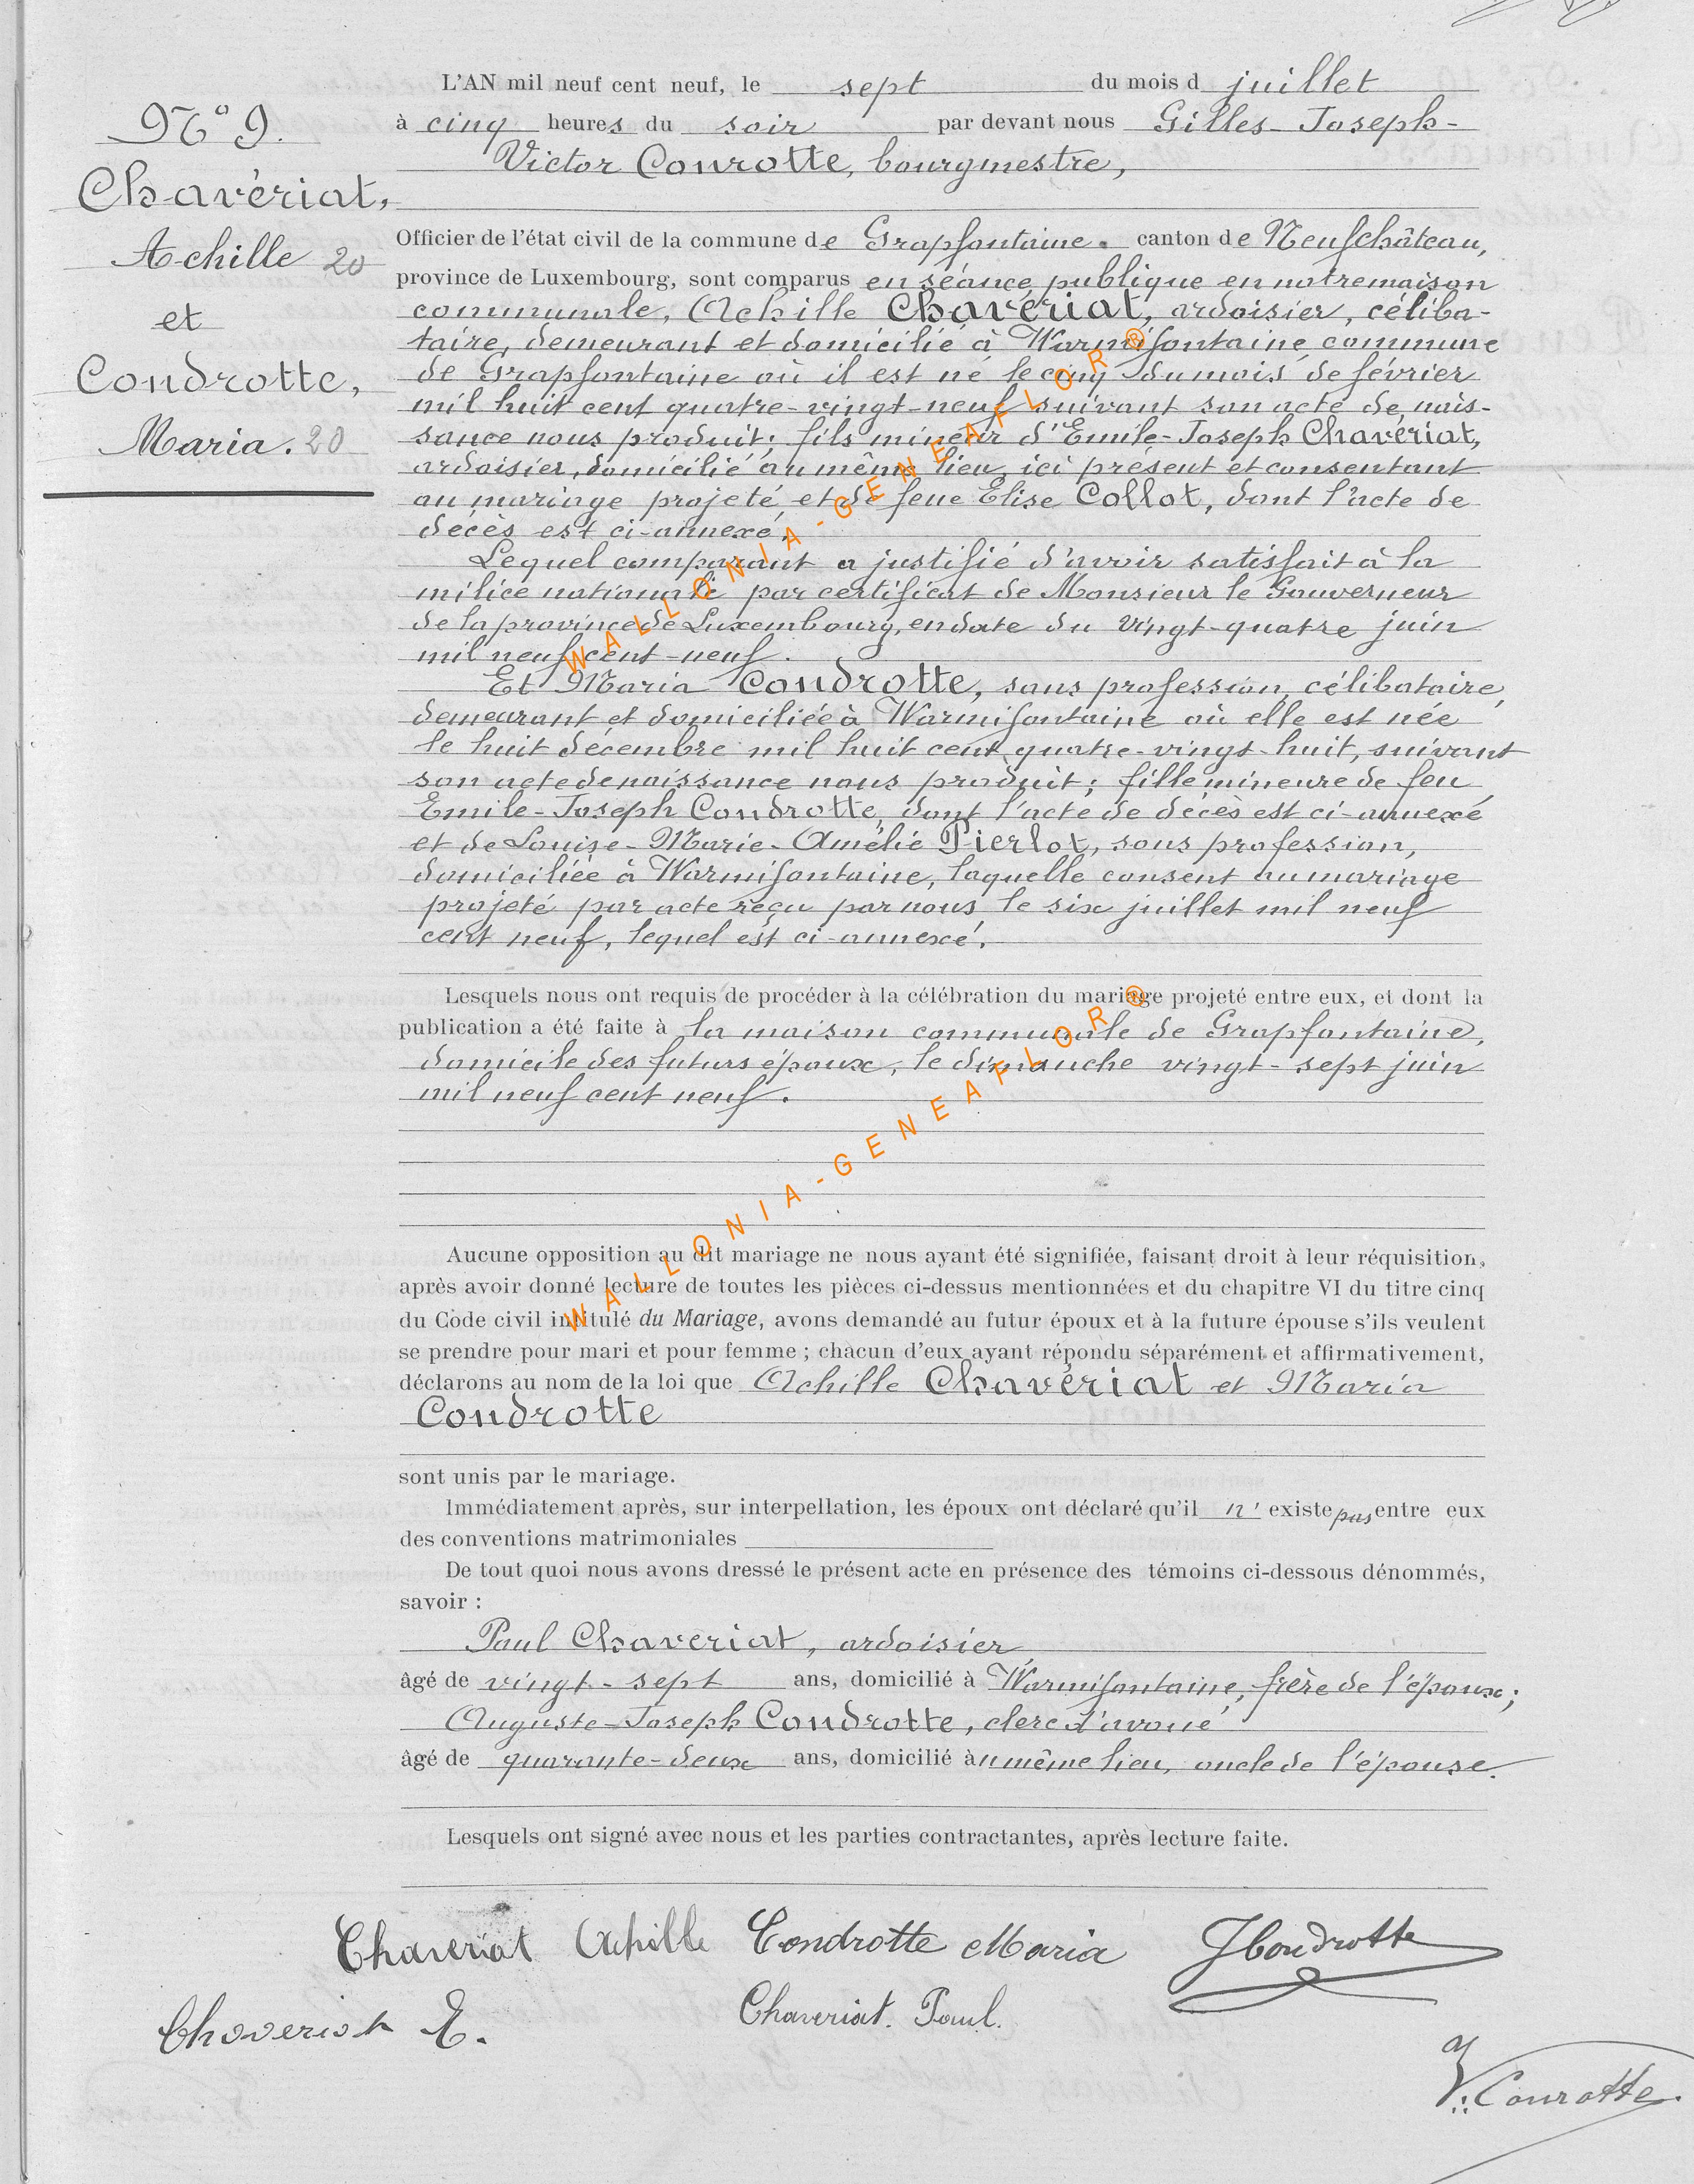 L'AN mil neuf cent neuf, le sept du mois d juillet
à cinq heures du soir par devant nous Gilles-Joseph-
Victor Conrotte, bourgmestre,
Officier de l'état civil de la commune de Grapfontaine. canton de Neufchâteau,
province de Luxembourg, sont comparus en séance publique en notre maison
communale, Achille Chavériat, ardoisier, céliba-
taire, demeurant et domicilié à Warmifontaine commune
de Grapfontaine où il est né le cinq du mois de février
mil huit cent quatre-vingt-neuf suivant son acte de nais-
sance nous produit; fils mineur d'Emile-Joseph Chavériat,
ardoisier, domicilié au même lieu, ici présent et consentant
au mariage projeté et de feue Elise Collot, dont l'acte de
décès est ci-annexé.
Lequel comparant a justifié d'avoir satisfait à la
milice nationale par certificat de Monsieur le Gouverneur
de la province de Luxembourg, en date du vingt-quatre juin
mil neuf cent-neuf.
Et Maria Condrotte, sans profession, célibataire,
demeurant et domiciliée à Warmifontaine où elle est née
le huit décembre mil huit cent quatre-vingt-huit, suivant
son acte de naissance nous produit; fille mineure de feu
Emile-Joseph Condrotte, dont l'acte de décès est ci-annexé
et de Louise-Marie-Amélie Pierlot, sans profession,
domiciliée à Warmifontaine, laquelle consent au mariage
projeté par acte reçu par nous le six juillet mil neuf
cent neuf, lequel est ci-annexé.
Lesquels nous ont requis de procéder à la célébration du mariage projeté entre eux, et dont la
publication a été faite à la maison communale de Grapfontaine,
domicile des futurs époux, le dimanche vingt-sept juin
mil neuf cent neuf.
Aucune opposition au dit mariage ne nous ayant été signifiée, faisant droit à leur réquisition,
après avoir donné lecture de toutes les pièces ci-dessus mentionnées et du chapitre VI du titre cinq
du Code civil intitulé du Mariage, avons demandé au futur époux et à la future épouse s'ils veulent
se prendre pour mari et pour femme ; chacun d'eux ayant répondu séparément et affirmativement,
déclarons au nom de la loi que Achille Chavériat et Maria
Condrotte
sont unis par le mariage.
Immédiatement après, sur interpellation, les époux ont déclaré qu'il n' existe pas entre eux
des conventions matrimoniales
De tout quoi nous avons dressé le présent acte en présence des témoins ci-dessous dénommés,
savoir :
Paul Chaveriat, ardoisier,
âgé de vingt-sept ans, domicilié à Warmifontaine, frère de l'époux;
Auguste-Joseph Condrotte, clerc d'avoué
âgé de quarante-deux ans, domicilié au même lieu, oncle de l'épouse.
Lesquels ont signé avec nous et les parties contractantes, après lecture faite.
Chaveriat Achille Condrotte Maria JCondrotte
Chaveriat E. Chaveriat. Paul.
V. Conrotte.
N° 9.
Chavériat,
Achille 20
et
Condrotte,
Maria. 20
WALLONIA-GENEAFLOR®
WALLONIA-GENEAFLOR®